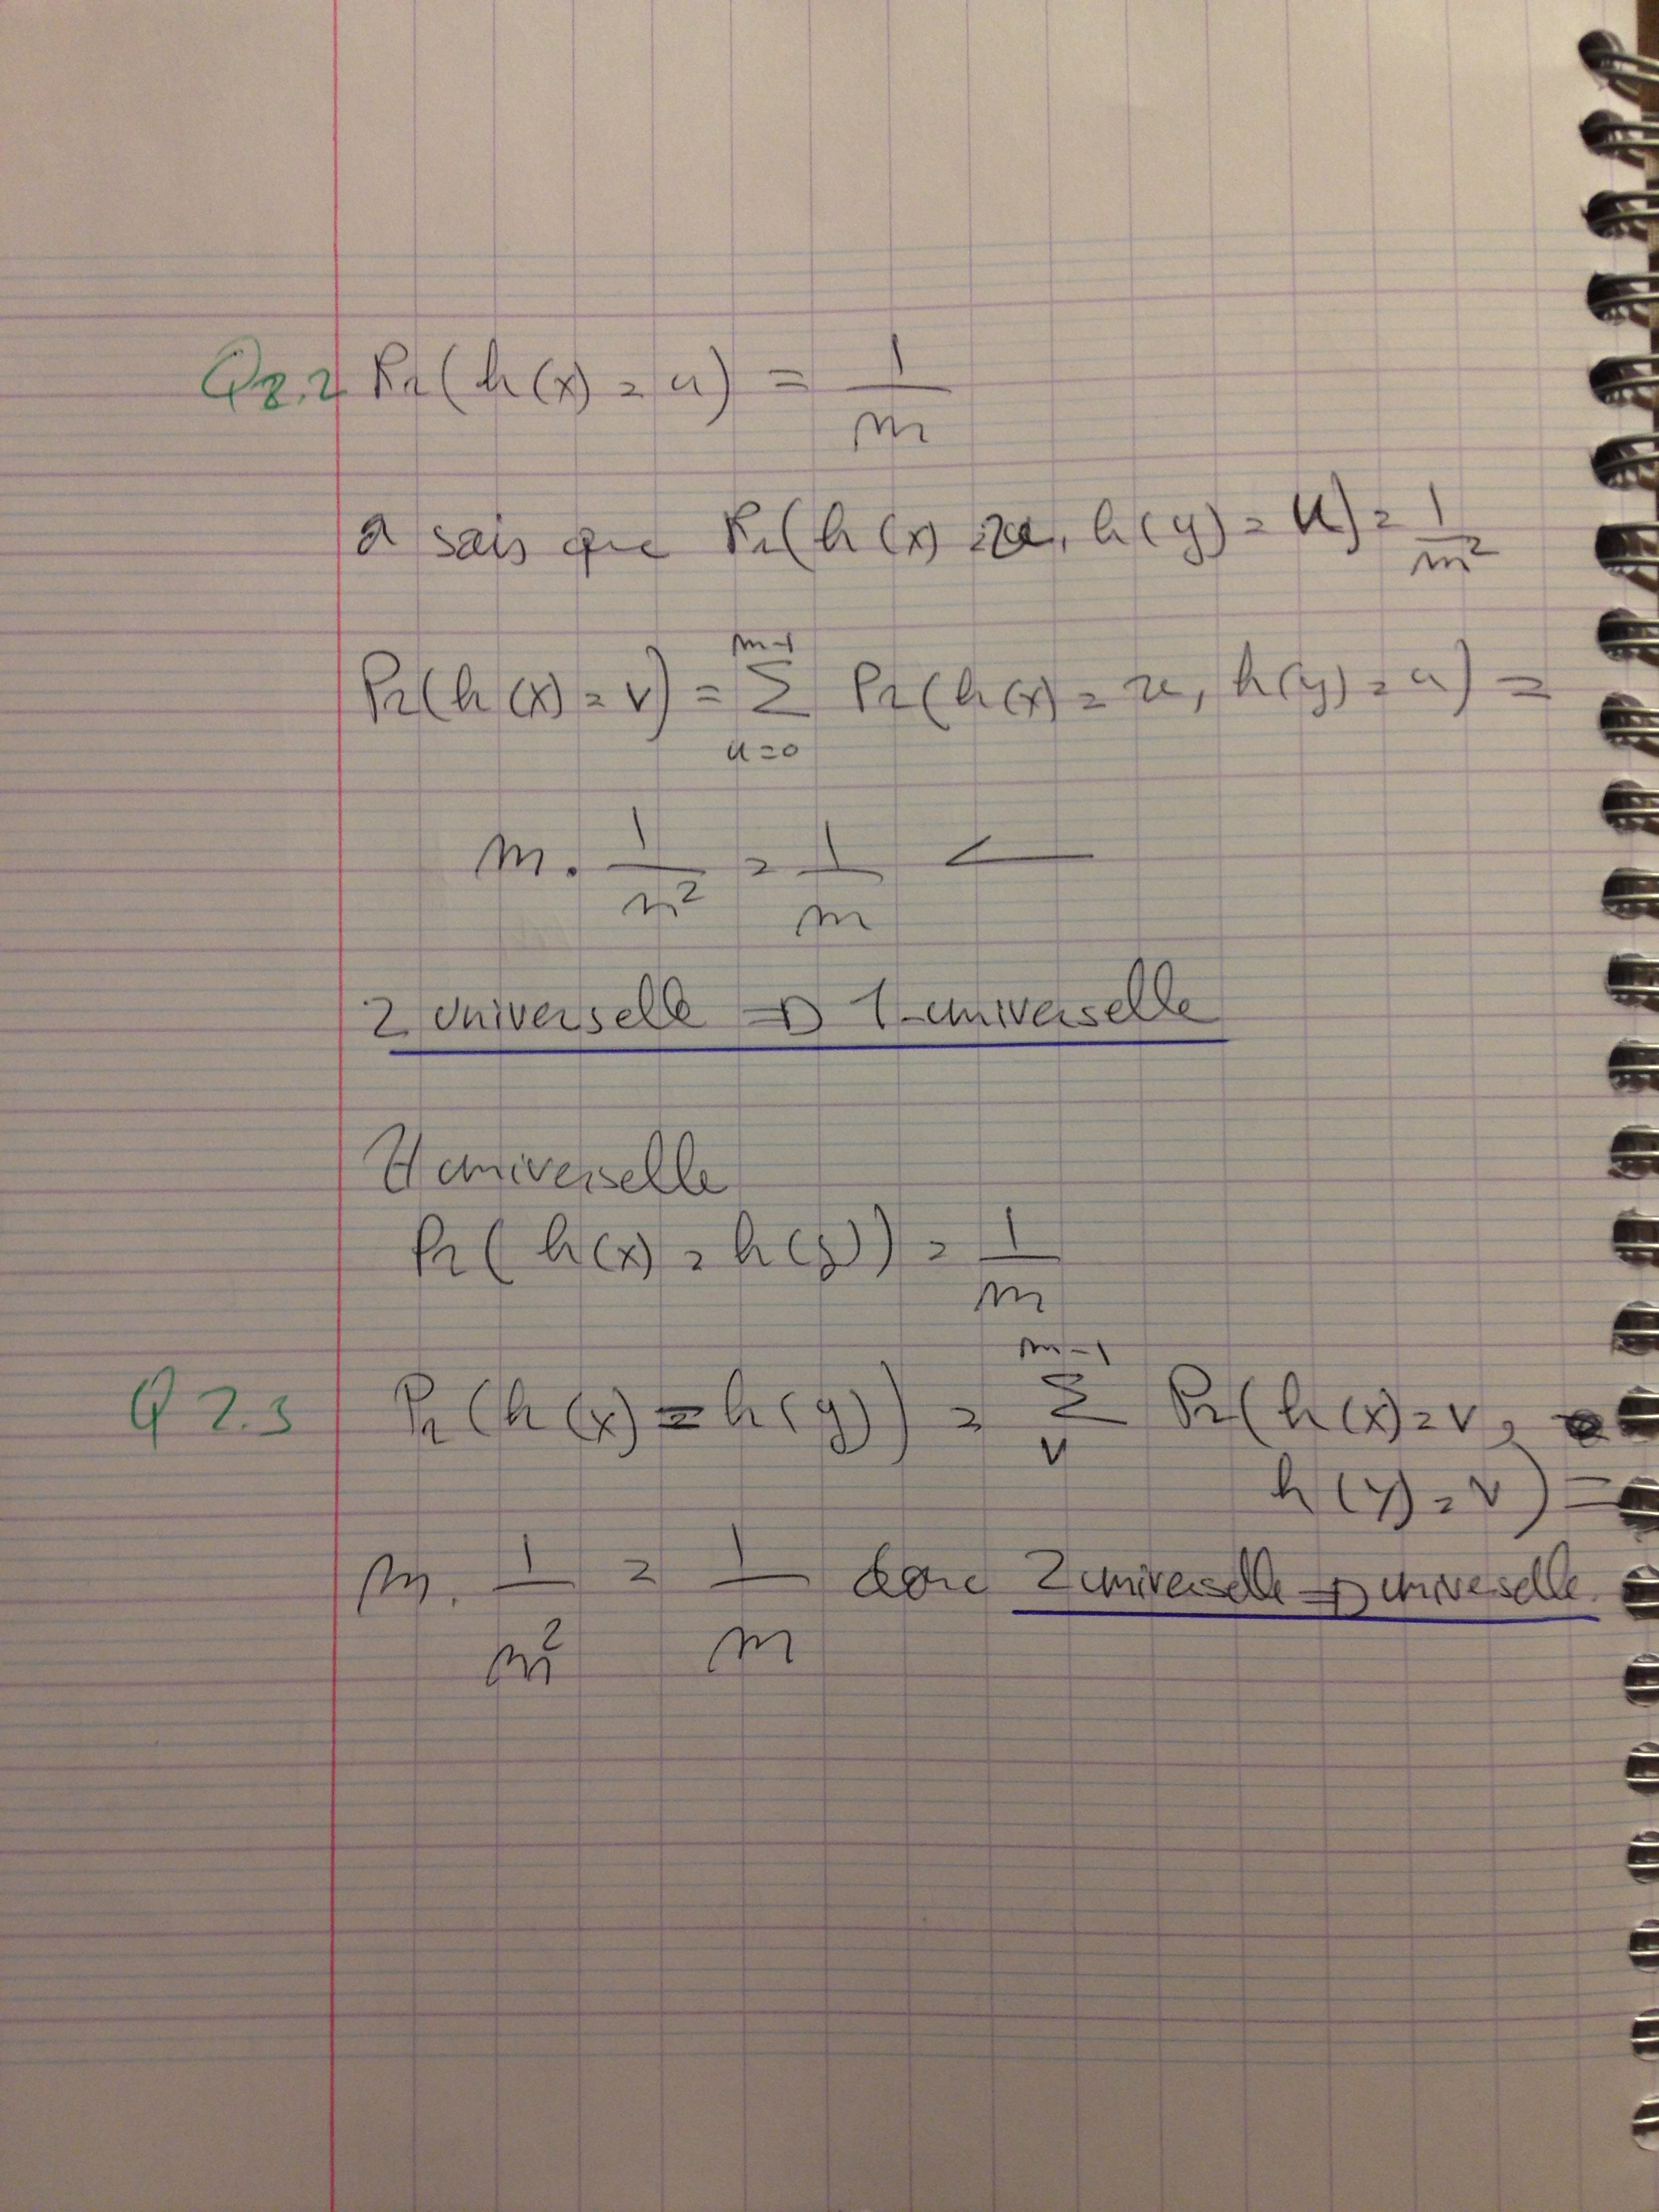 Q2.2 Pr(h(x) = u) = 1/m
on sais que Pr(h(x) = u, h(y) = u) = 1/m²
Pr(h(x) = v) = Σ_{u=0}^{m-1} Pr(h(x) = u, h(y) = u) =
m . 1/m² = 1/m ←
2 universelle ⇒ 1-universelle
H universelle
Pr(h(x) = h(y)) = 1/m
Q 2.3 Pr(h(x) = h(y)) = Σ_{v}^{m-1} Pr(h(x) = v,
h(y) = v) =
m . 1/m² = 1/m donc 2 universelle ⇒ universelle.